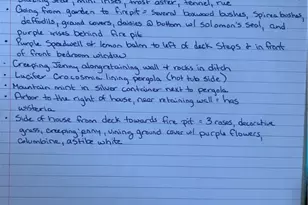 Creeping sedum, mini irises, most aster, fennel, rue
• Going from garden to firepit = several boxwood bushes, Spirea bushes
daffodils, ground covers, daisies @ bottom w/ solomon's seal, and
purple irises behind fire pit
• Purple Speedwell & lemon balm to left of deck steps & in front
of front bedroom window
• Creeping Jenny along retaining wall & rocks in ditch
• Lucifer Crocosmia lining pergola (hot tub side)
• Mountain mint in silver container next to pergola
• Arbor to the right of house, near retaining wall = has
wisteria
• Side of house from deck towards fire pit = 3 roses, decorative
grass, creeping jenny, vining ground cover w/ purple flowers,
Columbine, astilbe white